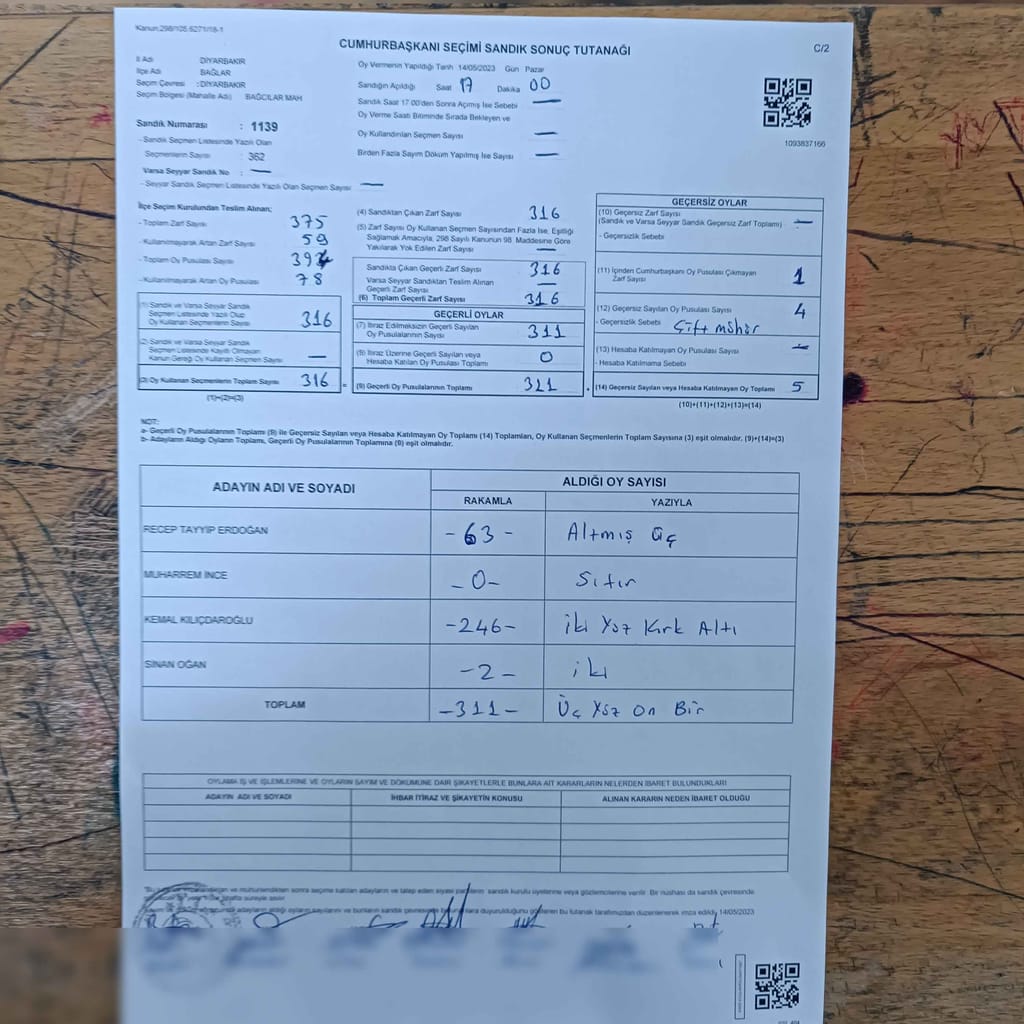 Kanun:298/105.6271/18-1
CUMHURBAŞKANI SEÇİMİ SANDIK SONUÇ TUTANAĞI
C/2
İl Adı DİYARBAKIR
İlçe Adı BAĞLAR
Seçim Çevresi : DİYARBAKIR
Seçim Bölgesi (Mahalle Adı) BAĞCILAR MAH
Oy Vermenin Yapıldığı Tarih 14/05/2023 Gün Pazar
Sandığın Açıldığı Saat 17 Dakika 00
Sandık Saat 17.00'den Sonra Açmış İse Sebebi —
Oy Verme Saati Bitiminde Sırada Bekleyen ve
Oy Kullandırılan Seçmen Sayısı —
Birden Fazla Sayım Döküm Yapılmış İse Sayısı —
1093837166
Sandık Numarası : 1139
- Sandık Seçmen Listesinde Yazılı Olan
Seçmenlerin Sayısı : 362
Varsa Seyyar Sandık No : —
- Seyyar Sandık Seçmen Listesinde Yazılı Olan Seçmen Sayısı —
İlçe Seçim Kurulundan Teslim Alınan;
- Toplam Zarf Sayısı 375
- Kullanılmayarak Artan Zarf Sayısı 59
- Toplam Oy Pusulası Sayısı
- Kullanılmayarak Artan Oy Pusulası 78
(1) Sandık ve Varsa Seyyar Sandık
Seçmen Listesinde Yazılı Olup
Oy Kullanan Seçmenlerin Sayısı 316
(2) Sandık ve Varsa Seyyar Sandık
Seçmen Listesinde Kayıtlı Olmayan
Kanun Gereği Oy Kullanan Seçmen Sayısı —
(3) Oy Kullanan Seçmenlerin Toplam Sayısı 316 =
(1)+(2)=(3)
(4) Sandıktan Çıkan Zarf Sayısı 316
(5) Zarf Sayısı Oy Kullanan Seçmen Sayısından Fazla İse, Eşitliği
Sağlamak Amacıyla, 298 Sayılı Kanunun 98. Maddesine Göre
Yakılarak Yok Edilen Zarf Sayısı —
Sandıkta Çıkan Geçerli Zarf Sayısı 316
Varsa Seyyar Sandıktan Teslim Alınan
Geçerli Zarf Sayısı —
(6) Toplam Geçerli Zarf Sayısı 316
GEÇERLİ OYLAR
(7) İtiraz Edilmeksizin Geçerli Sayılan
Oy Pusulalarının Sayısı 311
(8) İtiraz Üzerine Geçerli Sayılan veya
Hesaba Katılan Oy Pusulası Toplamı 0
(9) Geçerli Oy Pusulalarının Toplamı 311
GEÇERSİZ OYLAR
(10) Geçersiz Zarf Sayısı
(Sandık ve Varsa Seyyar Sandık Geçersiz Zarf Toplamı) —
- Geçersizlik Sebebi
(11) İçinden Cumhurbaşkanı Oy Pusulası Çıkmayan
Zarf Sayısı 1
(12) Geçersiz Sayılan Oy Pusulası Sayısı 4
- Geçersizlik Sebebi Çift mühür
(13) Hesaba Katılmayan Oy Pusulası Sayısı —
- Hesaba Katılmama Sebebi
(14) Geçersiz Sayılan veya Hesaba Katılmayan Oy Toplamı 5
(10)+(11)+(12)+(13)=(14)
NOT:
a- Geçerli Oy Pusulalarının Toplamı (9) ile Geçersiz Sayılan veya Hesaba Katılmayan Oy Toplamı (14) Toplamları, Oy Kullanan Seçmenlerin Toplam Sayısına (3) eşit olmalıdır. (9)+(14)=(3)
b- Adayların Aldığı Oyların Toplamı, Geçerli Oy Pusulalarının Toplamına (9) eşit olmalıdır.
ADAYIN ADI VE SOYADI
ALDIĞI OY SAYISI
RAKAMLA YAZIYLA
RECEP TAYYİP ERDOĞAN -63- Altmış üç
MUHARREM İNCE -0- Sıfır
KEMAL KILIÇDAROĞLU -246- İki Yüz Kırk Altı
SİNAN OĞAN -2- iki
TOPLAM -311- Üç Yüz On Bir
OYLAMA İŞ VE İŞLEMLERİNE VE OYLARIN SAYIM VE DÖKÜMÜNE DAİR ŞİKAYETLERLE BUNLARA AİT KARARLARIN NELERDEN İBARET BULUNDUKLARI
ADAYIN ADI VE SOYADI İHBAR İTİRAZ VE ŞİKAYETİN KONUSU ALINAN KARARIN NEDEN İBARET OLDUĞU
ve mühürlendikten sonra seçime katılan adayların ve talep eden siyasi partilerin sandık kurulu üyelerine veya gözlemcilerine verilir. Bir nüshası da sandık çevresinde
adayların aldığı oyların sayılarını ve bunların sandık çevresindeki duyurulduğunu gösteren bu tutanak tarafımızdan düzenlenerek imza edildi. 14/05/2023